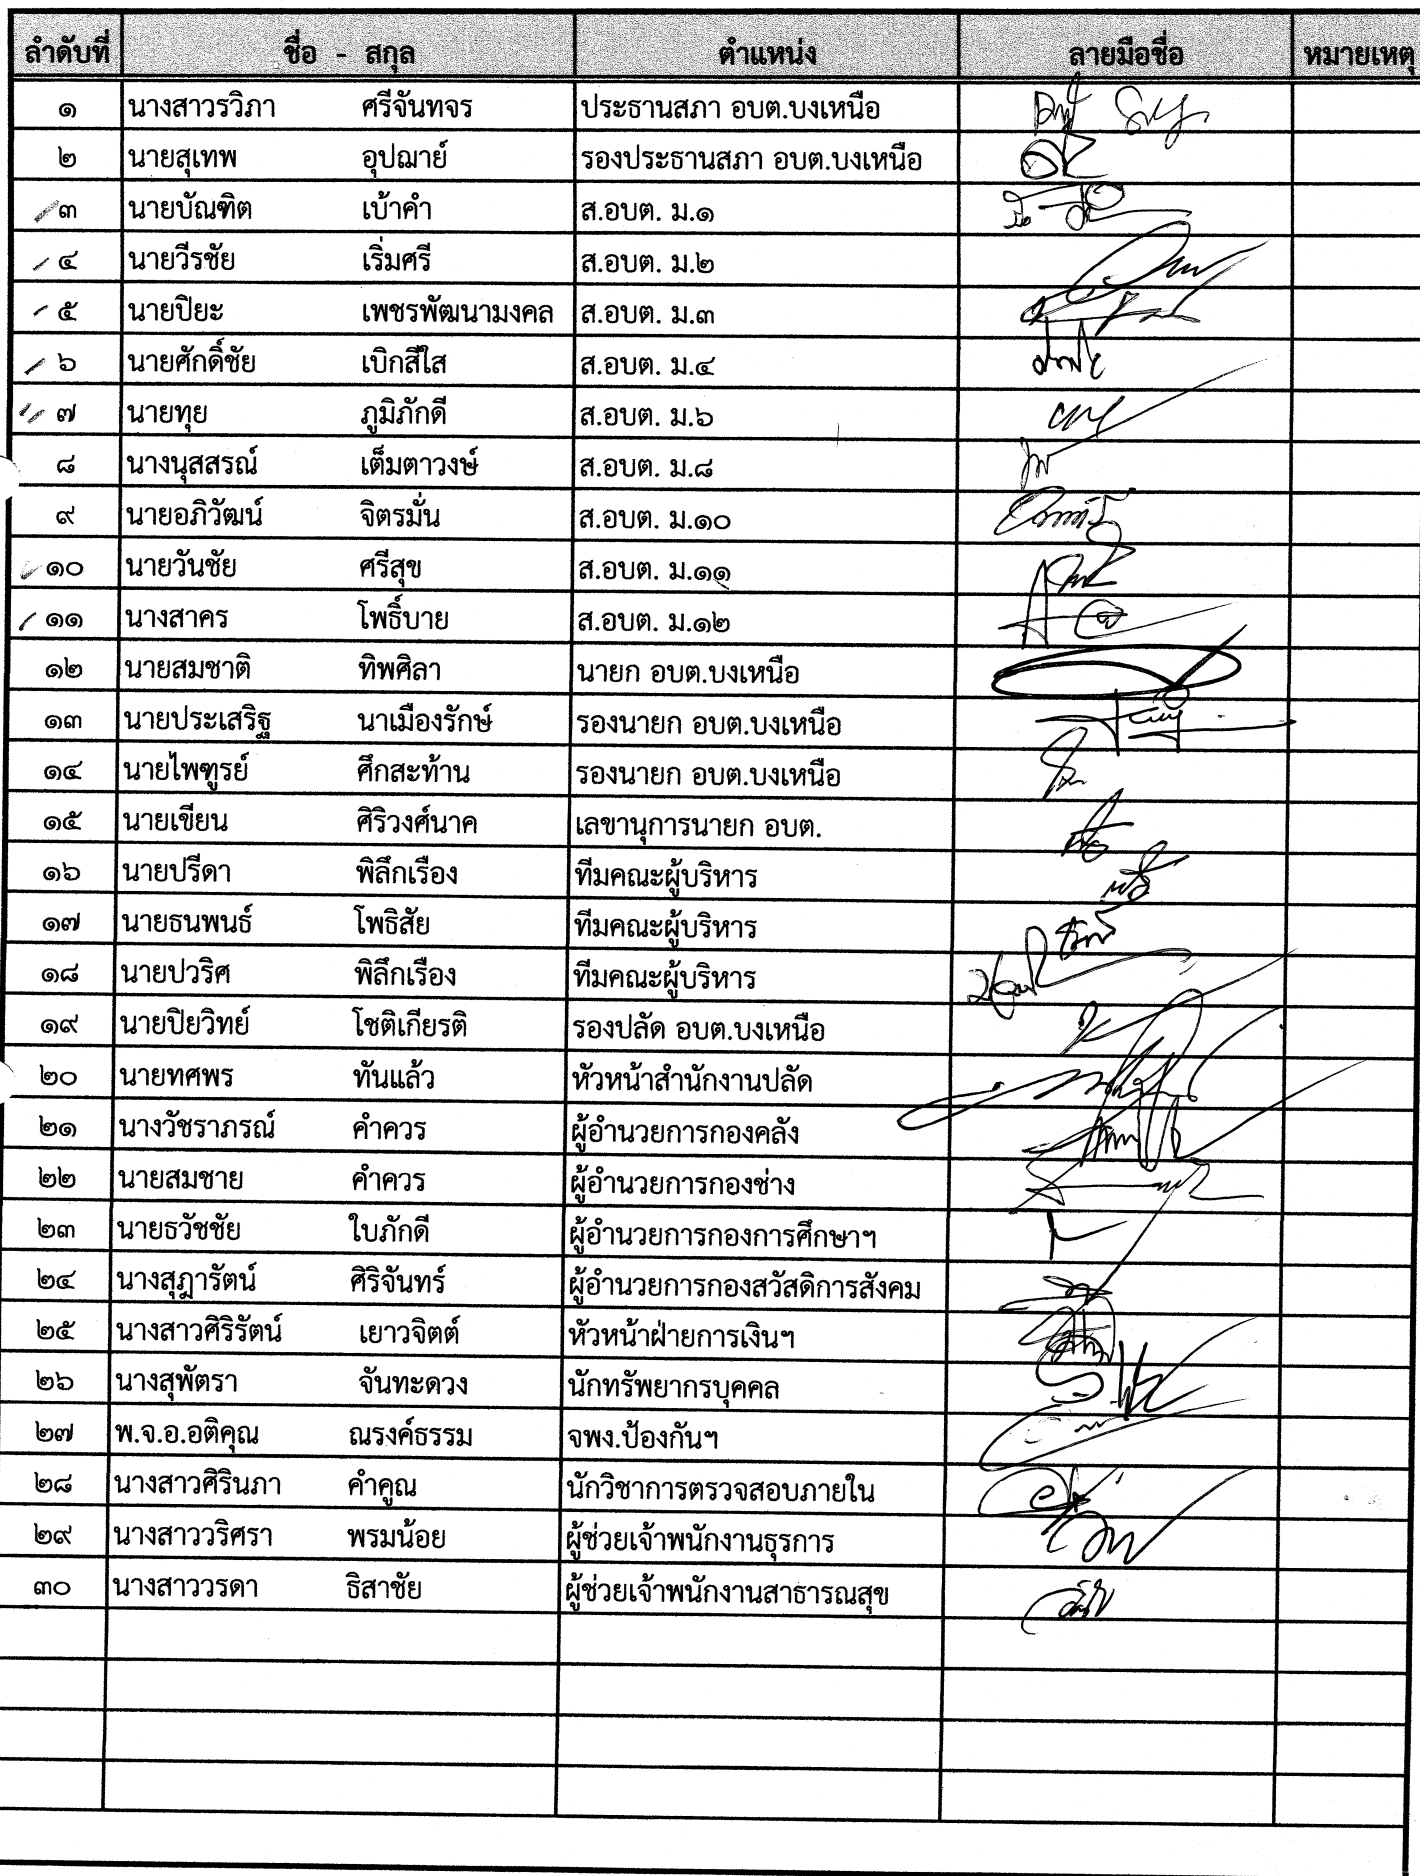 ลำดับที่ ชื่อ - สกุล ตำแหน่ง ลายมือชื่อ หมายเหตุ
๑ นางสาวรวิภา ศรีจันทจร ประธานสภา อบต.บงเหนือ
๒ นายสุเทพ อุปฌาย์ รองประธานสภา อบต.บงเหนือ
๓ นายบัณฑิต เบ้าคำ ส.อบต. ม.๑
๔ นายวีรชัย เริ่มศรี ส.อบต. ม.๒
๕ นายปิยะ เพชรพัฒนามงคล ส.อบต. ม.๓
๖ นายศักดิ์ชัย เบิกสีใส ส.อบต. ม.๔
๗ นายทุย ภูมิภักดี ส.อบต. ม.๖
๘ นางนุสสรณ์ เต็มตาวงษ์ ส.อบต. ม.๘
๙ นายอภิวัฒน์ จิตรมั่น ส.อบต. ม.๑๐
๑๐ นายวันชัย ศรีสุข ส.อบต. ม.๑๑
๑๑ นางสาคร โพธิ์บาย ส.อบต. ม.๑๒
๑๒ นายสมชาติ ทิพศิลา นายก อบต.บงเหนือ
๑๓ นายประเสริฐ นาเมืองรักษ์ รองนายก อบต.บงเหนือ
๑๔ นายไพฑูรย์ ศึกสะท้าน รองนายก อบต.บงเหนือ
๑๕ นายเขียน ศิริวงศ์นาค เลขานุการนายก อบต.
๑๖ นายปรีดา พิลึกเรือง ทีมคณะผู้บริหาร
๑๗ นายธนพนธ์ โพธิสัย ทีมคณะผู้บริหาร
๑๘ นายปวริศ พิลึกเรือง ทีมคณะผู้บริหาร
๑๙ นายปิยวิทย์ โชติเกียรติ รองปลัด อบต.บงเหนือ
๒๐ นายทศพร ทันแล้ว หัวหน้าสำนักงานปลัด
๒๑ นางวัชราภรณ์ คำควร ผู้อำนวยการกองคลัง
๒๒ นายสมชาย คำควร ผู้อำนวยการกองช่าง
๒๓ นายธวัชชัย ใบภักดี ผู้อำนวยการกองการศึกษาฯ
๒๔ นางสุฎารัตน์ ศิริจันทร์ ผู้อำนวยการกองสวัสดิการสังคม
๒๕ นางสาวศิริรัตน์ เยาวจิตต์ หัวหน้าฝ่ายการเงินฯ
๒๖ นางสุพัตรา จันทะดวง นักทรัพยากรบุคคล
๒๗ พ.จ.อ.อติคุณ ณรงค์ธรรม จพง.ป้องกันฯ
๒๘ นางสาวศิรินภา คำคูณ นักวิชาการตรวจสอบภายใน
๒๙ นางสาววริศรา พรมน้อย ผู้ช่วยเจ้าพนักงานธุรการ
๓๐ นางสาววรดา ธิสาชัย ผู้ช่วยเจ้าพนักงานสาธารณสุข